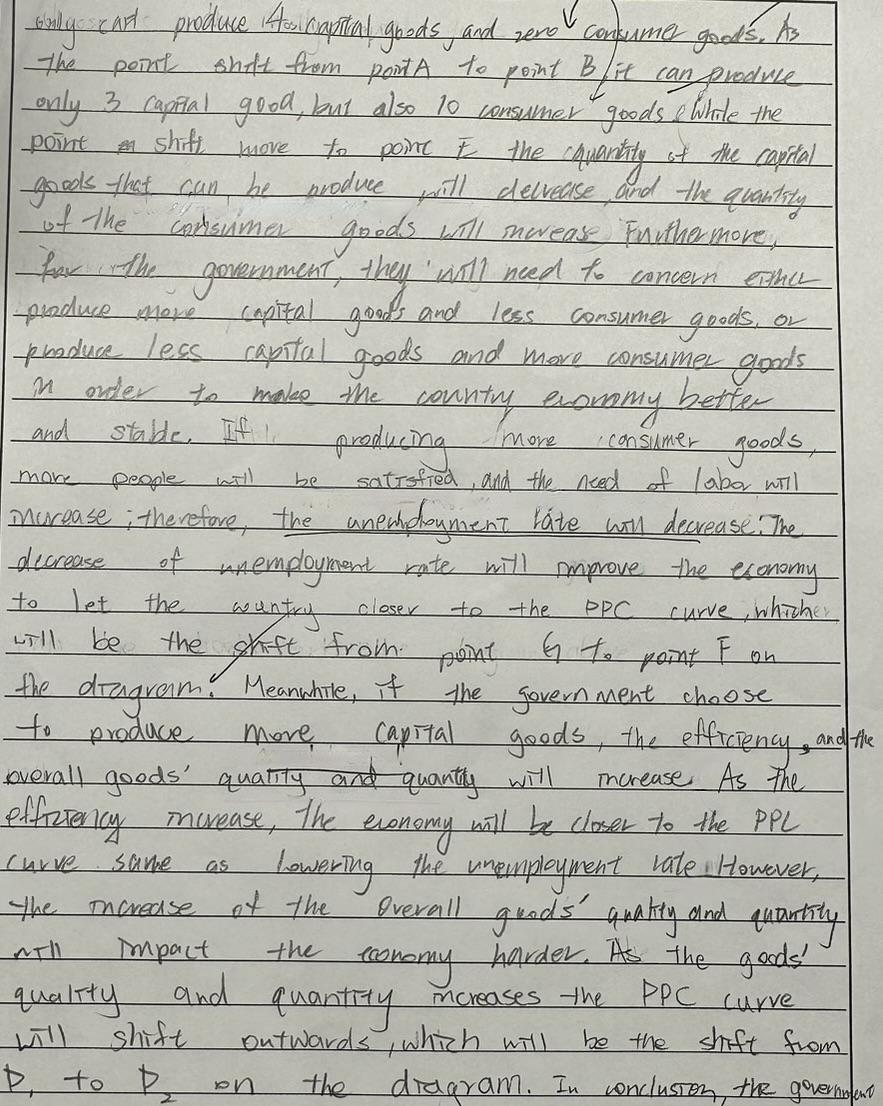 only can produce 4 capital goods, and zero consumer goods. As
the point shift from point A to point B, it can produce
only 3 capital good, but also 10 consumer goods. While the
point shift move to point E the quantity of the capital
goods that can be produce will decrease, and the quantity
of the consumer goods will increase. Furthermore,
for the government, they will need to concern either
produce more capital goods and less consumer goods, or
produce less capital goods and more consumer goods
in order to make the country economy better
and stable. If producing more consumer goods,
more people will be satisfied, and the need of labor will
increase; therefore, the unemployment rate will decrease. The
decrease of unemployment rate will improve the economy
to let the country closer to the PPC curve, which
will be the shift from point G to point F on
the diagram. Meanwhile, if the government choose
to produce more capital goods, the efficiency, and the
overall goods' quality and quantity will increase. As the
efficiency increase, the economy will be closer to the PPC
curve same as lowering the unemployment rate. However,
the increase of the overall goods' quality and quantity
will impact the economy harder. As the goods'
quality and quantity increases the PPC curve
will shift outwards, which will be the shift from
P₁ to P₂ on the diagram. In conclusion, the government